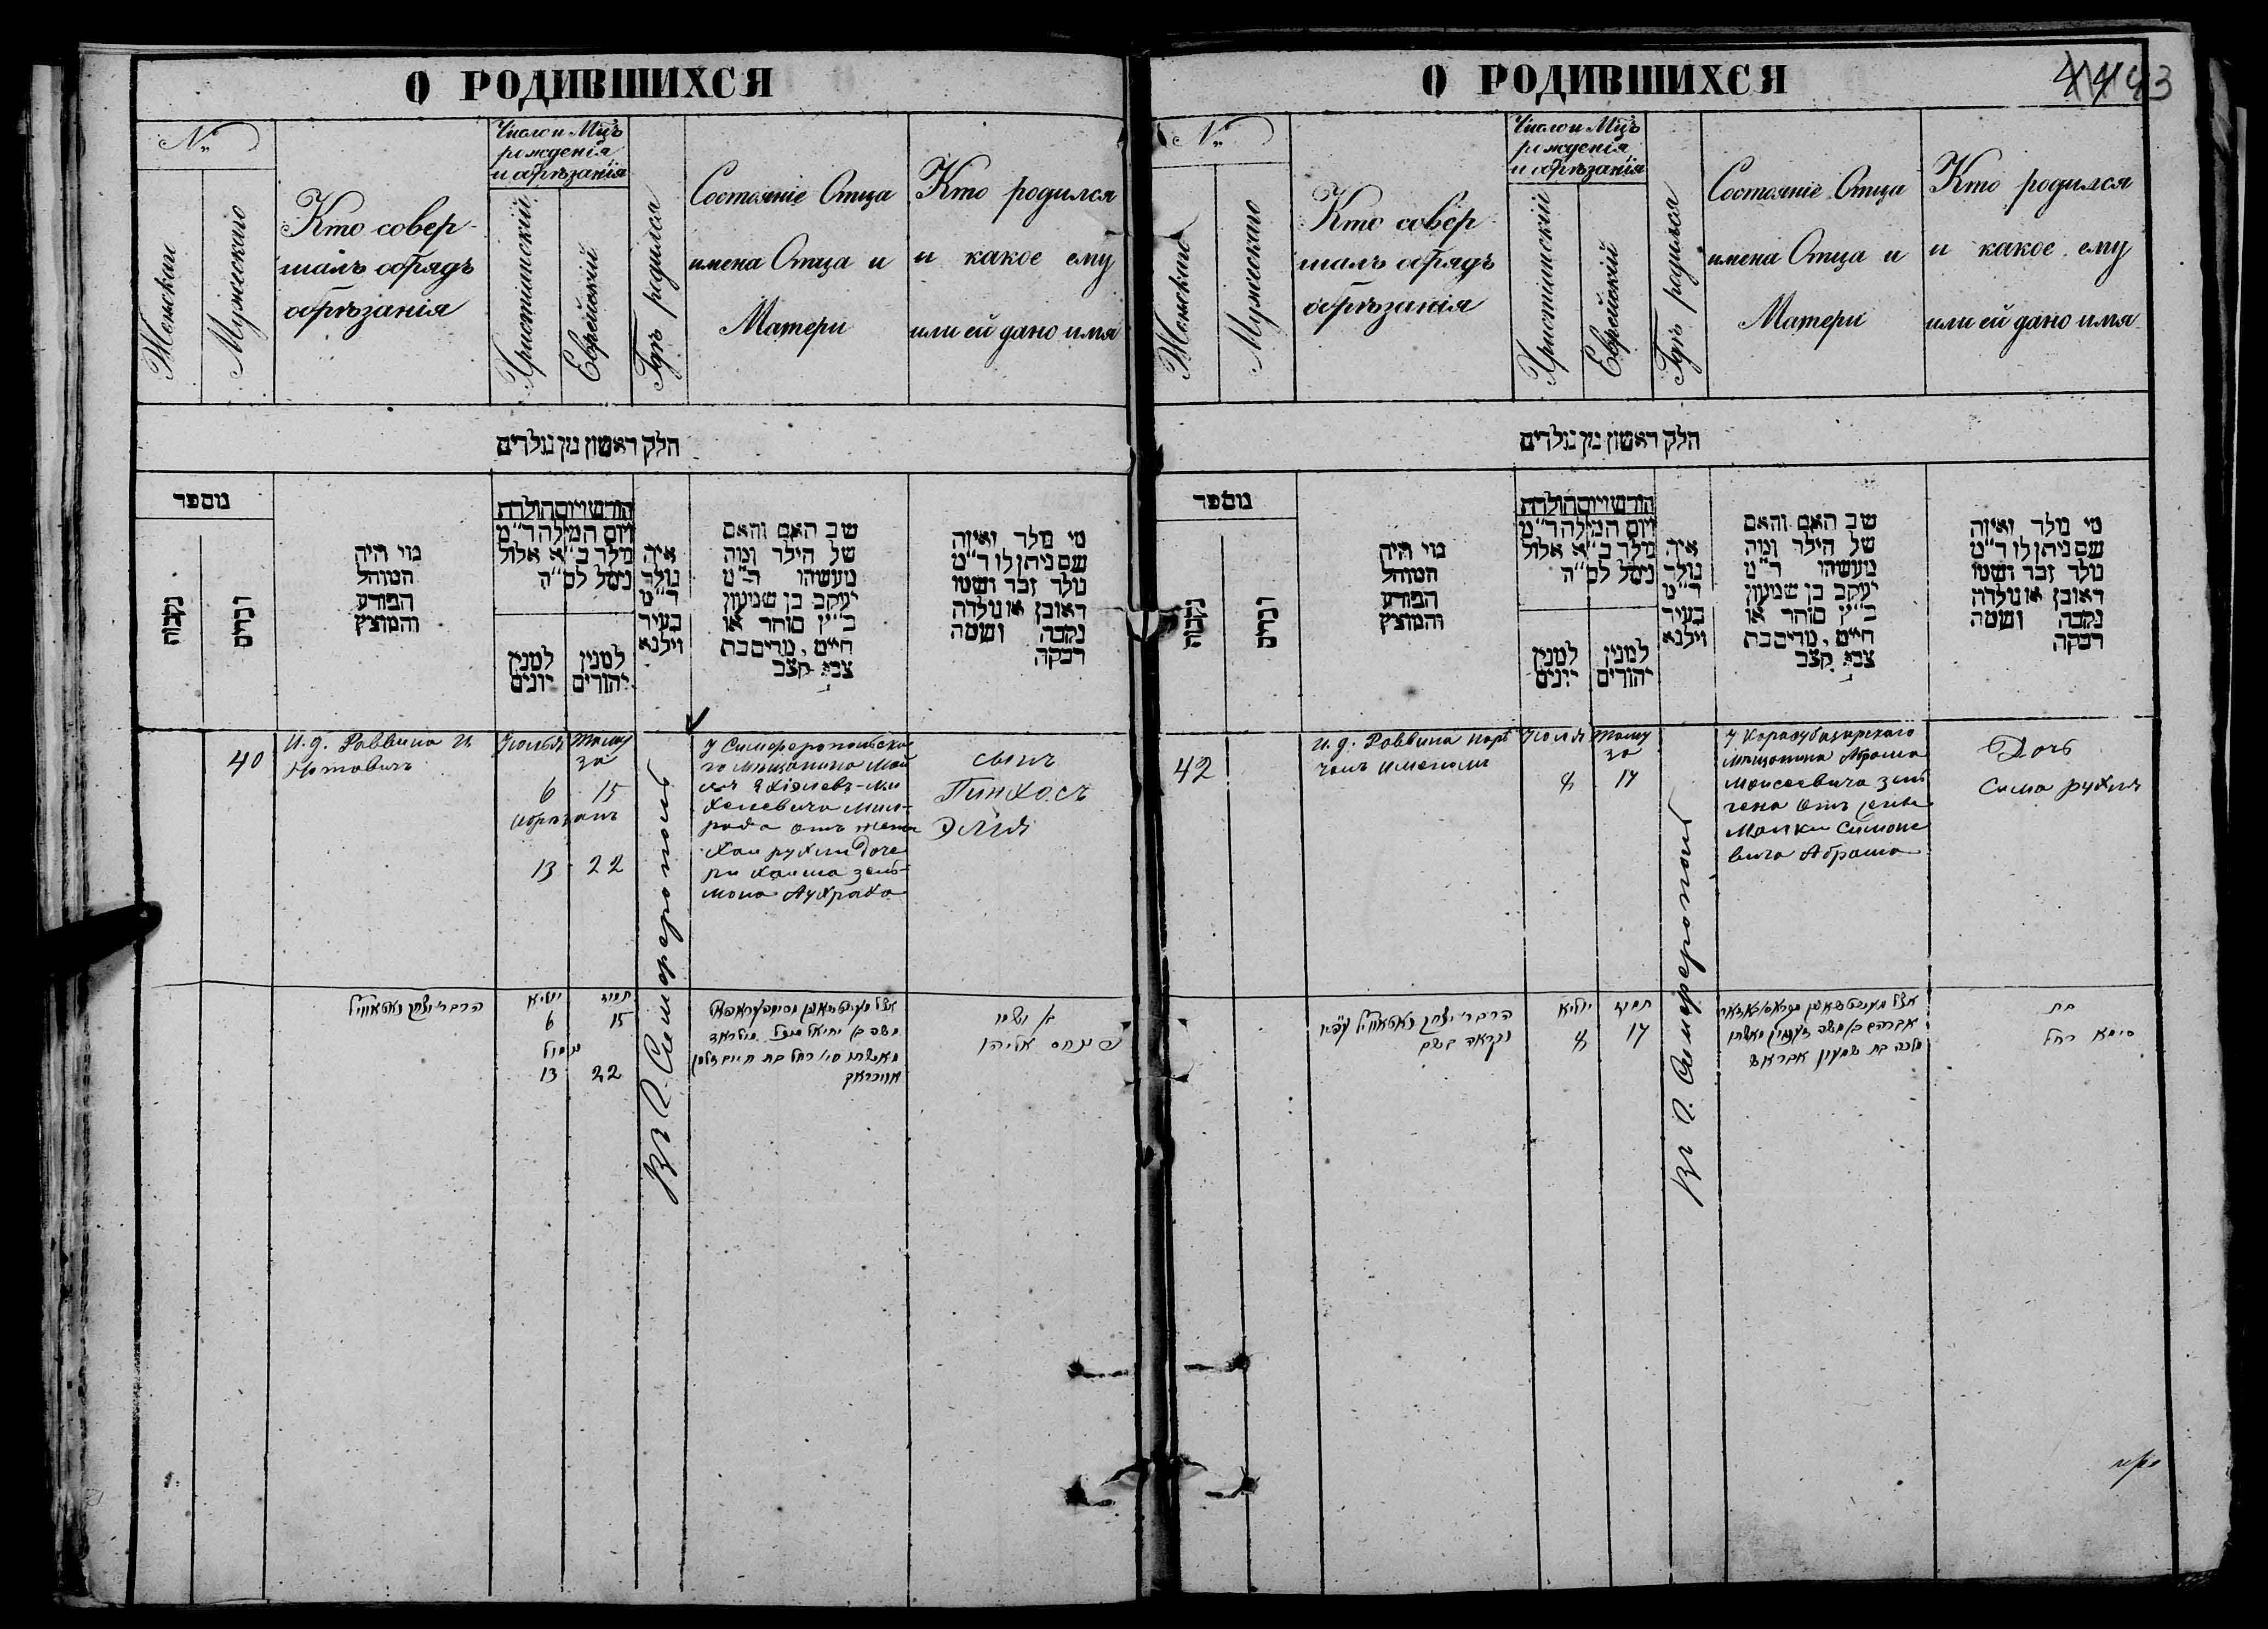 О РОДИВШИХСЯ
№
Женскаго
Мужескаго
Кто совер-
шалъ обрядъ
обрѣзанія
Число и Мцъ
рожденія
и обрѣзанія
Христіанскій
Еврейскій
Гдѣ родился
Состояніе Отца
имена Отца и
Матери
Кто родился
и какое ему
или ей дано имя
חלק ראשון מן נולדים
מספר
נקבות
זכרים
מי היה
המוהל
הפורע
והמוצץ
חודש ויום הולדת
ויום המילה ד״מ
נולד כ״א אלול
נימל לס״ה
למנין
יונים
למנין
יהודים
איה
נולד
ד״מ
בעיר
ווילנא
שב האם והאם
של הילד ומה
מעשהו ד״מ
יעקב בן שמעון
כ״ץ סוחר או
חיים, מרים בת
צבי קצב
מי נולד ואיזה
שם ניתן לו ד״מ
נולד זכר ושמו
ראובן או נולדה
נקבה ושמה
רבקה
40
И. д. Раввина И.
Нотовичъ
Іюля
Таму
за
6 15
обрѣзанъ
13 22
Въ г. Симферополѣ
У Симферопольска
го мѣщанина Мой
келевича Мил-
рада отъ жены
Хаи рухли доче
ри Хаима Зель-
мона
сынъ
Пинхосъ
Элія
יוליא
תמוז
6 15
נימול
13 22
בן ושמו
פינחס אליהו
О РОДИВШИХСЯ
43
№
Женскаго
Мужескаго
Кто совер
шалъ обрядъ
обрѣзанія
Число и Мцъ
рожденія
и обрѣзанія
Христіанскій
Еврейскій
Гдѣ родился
Состояніе Отца
имена Отца и
Матери
Кто родился
и какое ему
или ей дано имя
חלק ראשון מן נולדים
מספר
נקבות
זכרים
מי היה
המוהל
הפורע
והמוצץ
חודש ויום הולדת
ויום המילה ד״מ
נולד כ״א אלול
נימל לס״ה
למנין
יונים
למנין
יהודים
איה
נולד
ד״מ
בעיר
ווילנא
שב האם והאם
של הילד ומה
מעשהו ד״מ
יעקב בן שמעון
כ״ץ סוחר או
חיים, מרים בת
צבי קצב
מי נולד ואיזה
שם ניתן לו ד״מ
נולד זכר ושמו
ראובן או נולדה
נקבה ושמה
רבקה
42
И. д. Раввина нарѣ
ченъ именемъ
Іюля
Таму
за
8 17
Въ г. Симферополѣ
У Карасубазарскаго
мѣщанина Абрама
Моисеевича
отъ жены
Малки Симоно
вича
Дочь
Сима рухля
יוליא
תמוז
8 17
ונקראה בשם
מלכה בת שמעון
בת
סימא רחל